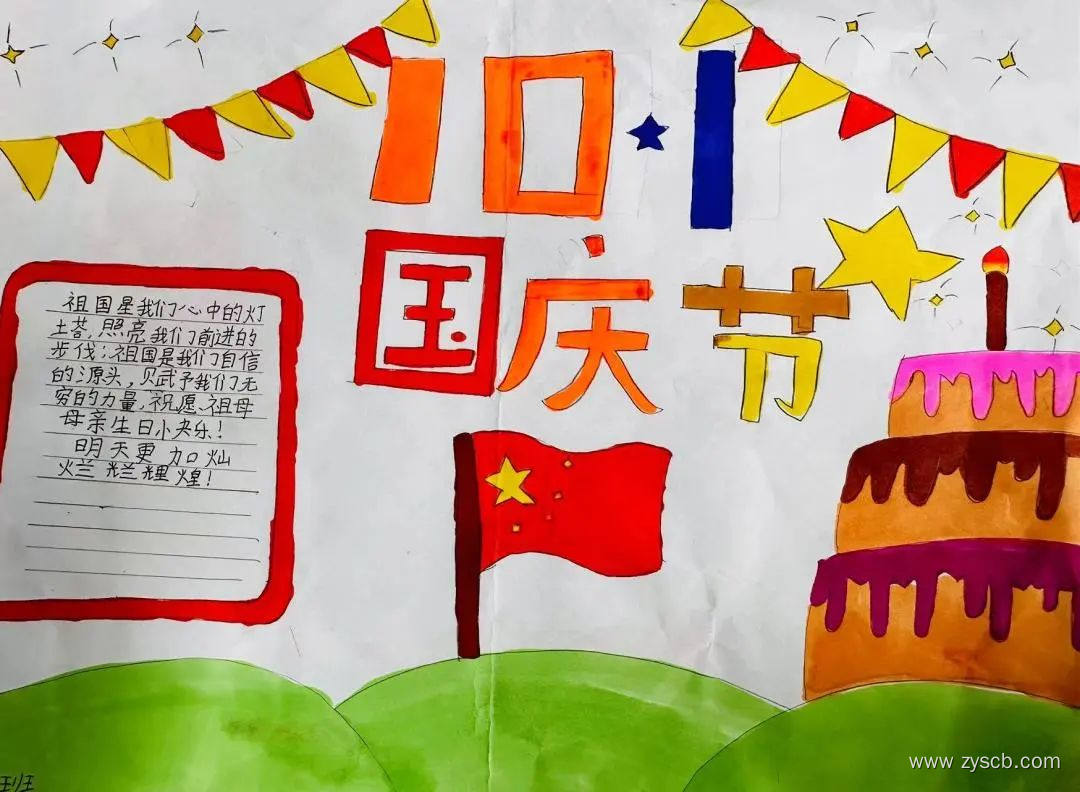 10·1
国庆节
祖国星我们心中的灯
土塔,照亮我们前进的
步伐;祖国是我们自信
的源头,贝武予我们无
穷的力量.祝愿.祖母
母亲生日小央乐!
明天更加灿
烂烂輝煌!
班
www.zyscb.com